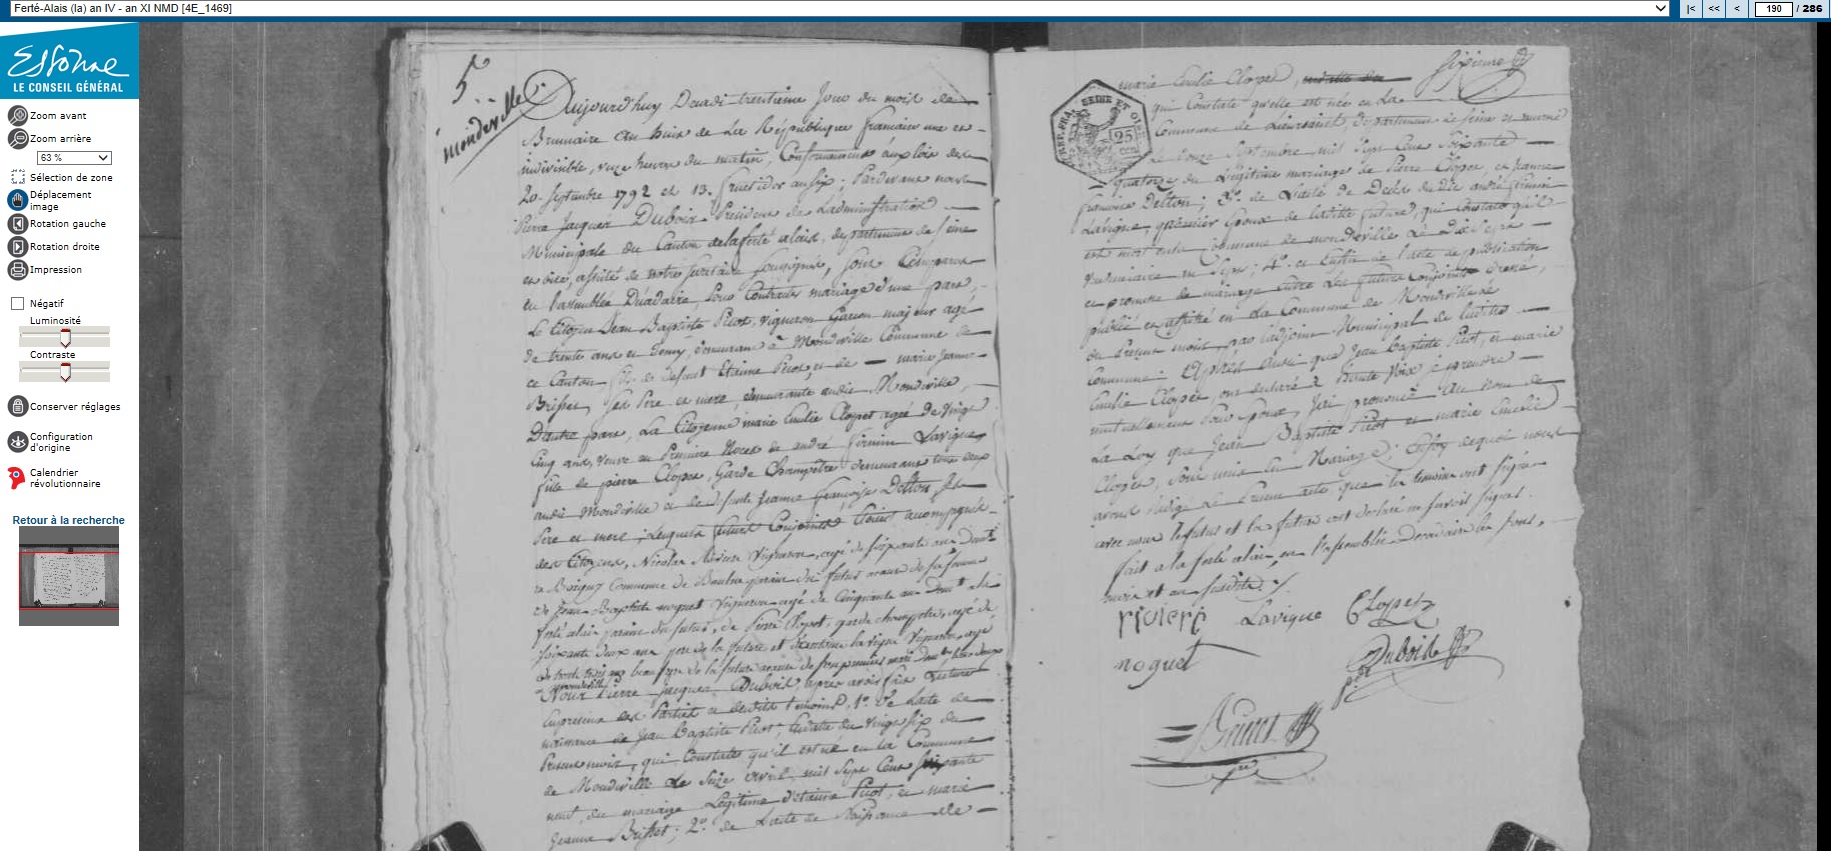 Ferté-Alais (la) an IV - an XI NMD [4E_1469]
|< << < 190 / 286
Essonne
LE CONSEIL GÉNÉRAL
Zoom avant
Zoom arrière
63 %
Sélection de zone
Déplacement
image
Rotation gauche
Rotation droite
Impression
Négatif
Luminosité
Contraste
Conserver réglages
Configuration
d'origine
Calendrier
révolutionnaire
Retour à la recherche
5
mondeville
Aujourd'huy Decadi trentieme Jour du mois de
Brumaire an huit de La République francaise une et
indivisible, onze heure du matin, Conformément aux loix des
20 Septembre 1792 et 13 fructidor an Six; Pardevant nous
Pierre Jacques Dubois Président de L'administration
Municipale du Canton de la ferté alais, departement de Seine
et oise, assisté de notre Secretaire Soussigné, Sont Comparus
en l'assemblée Décadaire, pour Contracter mariage d'une part,
Le Citoyen Jean Baptiste Picot, Vigneron Garcon majeur agé
de trente ans et demy, demeurant a Mondeville Commune de
ce Canton, fils de defunt Etienne Picot, et de marie Jeanne
Brisset, Ses Pere et mere, demeurante audit Mondeville,
D'autre part, La Citoyenne marie Emilie Clopet agée de Vingt
Cinq ans, Veuve en Premiere Noces de andré firmin Lavigne
fille de pierre Clopet, Garde Champêtre demeurant tous deux
audit Mondeville et de defunte Jeanne françoise Delton, Ses
Pere et mere; Lesquels futurs Conjoints Etoient accompagnés
des Citoyens, Nicolas Vigneron, agé de Soixante ans
Commune de Boutigny du futur a cause de sa femme
de Jean Baptiste noguet Vigneron agé de Cinquante ans Demt a la
ferté alais parain du futur, de Pierre Clopet, garde champetre, agé de
Soixante deux ans pere de la future et d' lavigne Vigneron, agé
de trente trois ans beau frere de la future a cause de son premier mari demt tous deux
a mondeville
Nous Pierre Jacques Dubois, après avoir fait Lecture
en presence des Parties et desdits temoins, 1°. De L'acte de
naissance de Jean Baptiste Picot, En date du Vingt Six du
Present mois, qui Constate qu'il est né en la Commune
de Mondeville Le Seize avril mil Sept Cent Soixante
neuf, du mariage Légitime d'étienne Picot, et marie
Jeanne Brisset; 2°. de L'acte de Naissance de
marie Emilie Clopet,
qui Constate qu'elle est née en La
Commune de departement de Seine et marne
Le Septembre mil Sept Cent Soixante
quatorze du Légitime mariage de Pierre Clopet, et Jeanne
françoise Delton; 3°. de L'acte de Décès dudit andré firmin
Lavigne, premier Epoux de ladite future, qui Constate qu'il
est mort en la Commune de mondeville Le
an Sept; 4°. et Enfin de l'acte de publication
et promesse de mariage entre Les futurs Conjoints dressé,
publié et affiché en La Commune de Mondeville Le
du Present mois, par L'adjoint Municipal de ladite
Commune; Après aussi que Jean Baptiste Picot, et marie
Emilie Clopet, ont declaré à haute Voix se prendre
mutuellement pour Epoux, J'ai prononcé au nom de
La Loy que Jean Baptiste Picot et marie Emelie
Clopet, Sont unis En Mariage; Et de quoi nous
avons rédigé Le present acte, que les temoins ont signé
avec nous le futur et la future ont declaré ne savoir signer.
fait a la ferté alais, en l'assemblée decadaire les jour,
mois et an susdits
REP. FRA. SEINE ET OISE
25
cen
riviere Lavigne Clopet
noguet Dubois
pdt